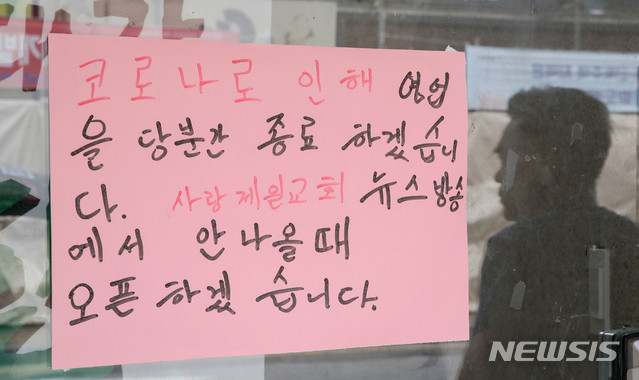 코로나로 인해 영업
을 당분간 종료 하겠습니
다. 사랑제일교회 뉴스방송
에서 안나올때
오픈하겠습니다.
NEWSIS